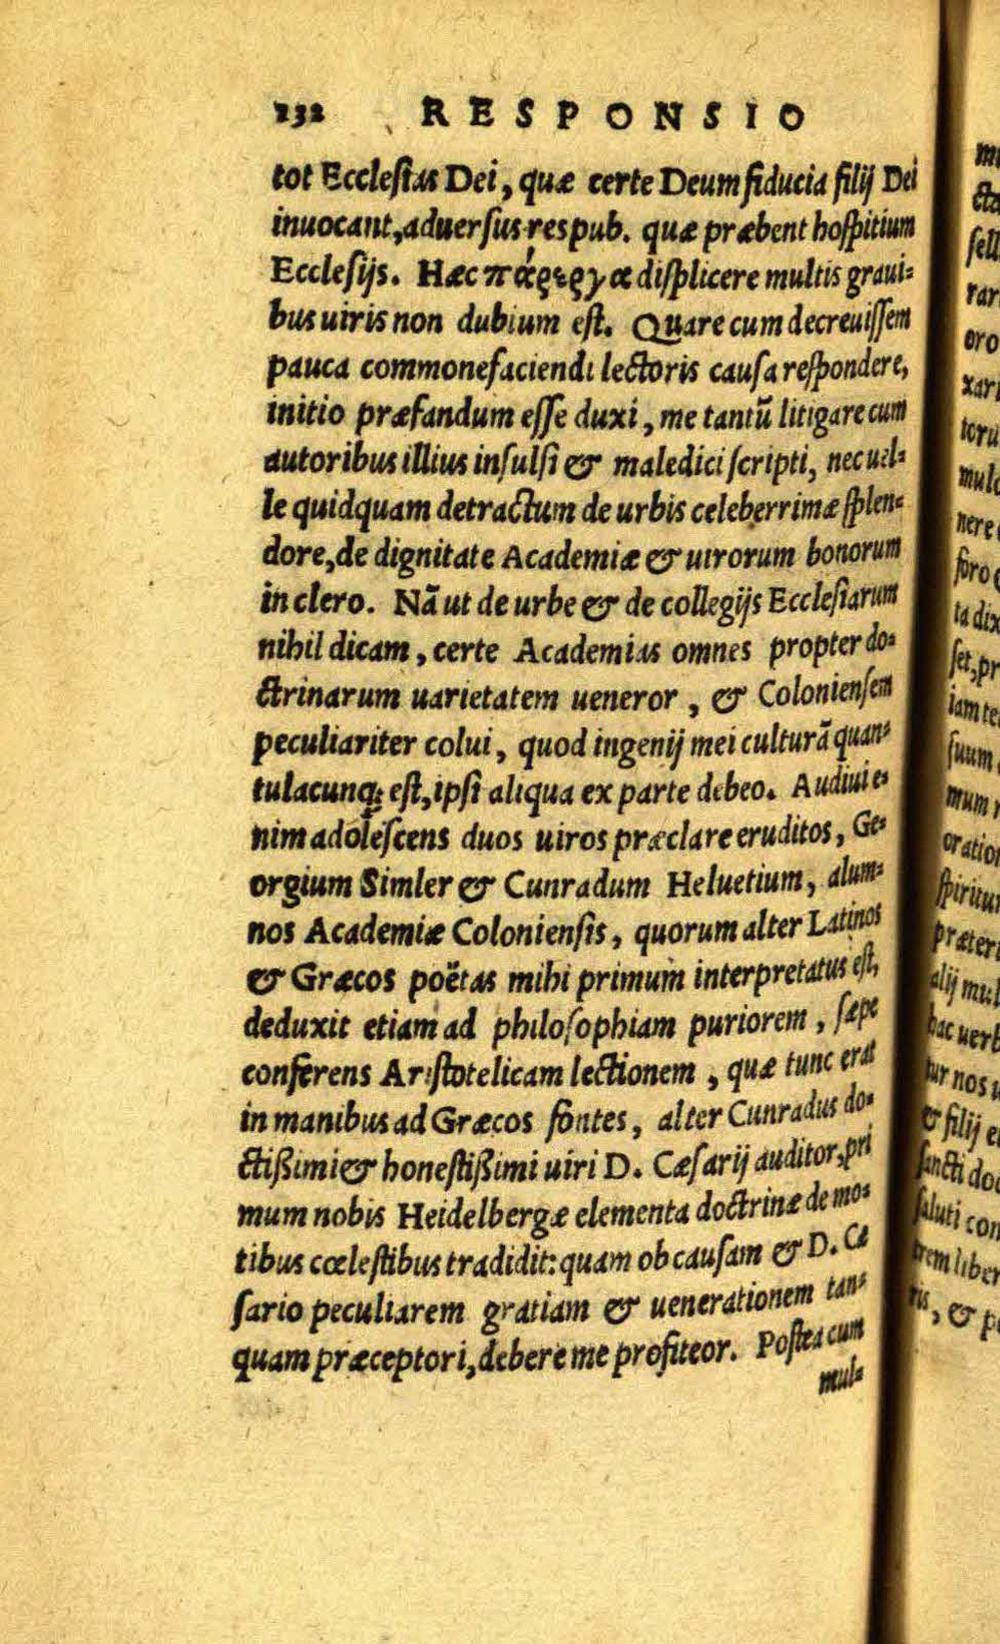 232 RESPONSIO
tot Ecclesias Dei, quæ certe Deum fiducia filij Dei
inuocant, aduersus respub. quæ præbent hospitium
Ecclesijs. Hæc πάρεργα displicere multis graui=
bus uiris non dubium est. Quare cum decreuissem
pauca commonefaciendi lectoris causa respondere,
initio præfandum esse duxi, me tantũ litigare cum
autoribus illius insulsi & maledici scripti, nec uel=
le quidquam detractum de urbis celeberrimæ splen=
dore, de dignitate Academiæ & uirorum bonorum
in clero. Nã ut de urbe & de collegijs Ecclesiarum
nihil dicam, certe Academias omnes propter do=
ctrinarum uarietatem ueneror, & Coloniensem
peculiariter colui, quod ingenij mei culturã quan=
tulacunq; est, ipsi aliqua ex parte debeo. Audiui e=
nim adolescens duos uiros præclare eruditos, Ge=
orgium Simler & Cunradum Heluetium, alum=
nos Academiæ Coloniensis, quorum alter Latinos
& Græcos poëtas mihi primum interpretatus est,
deduxit etiam ad philosophiam puriorem, sæpe
conferens Aristotelicam lectionem, quæ tunc erat
in manibus ad Græcos fontes, alter Cunradus do=
ctißimi & honestißimi uiri D. Cæsarij auditor, pri
mum nobis Heidelbergæ elementa doctrinæ de mo=
tibus cœlestibus tradidit: quam ob causam & D. Cæ
sario peculiarem gratiam & uenerationem tan=
quam præceptori, debere me profiteor. Postea cum
mul=